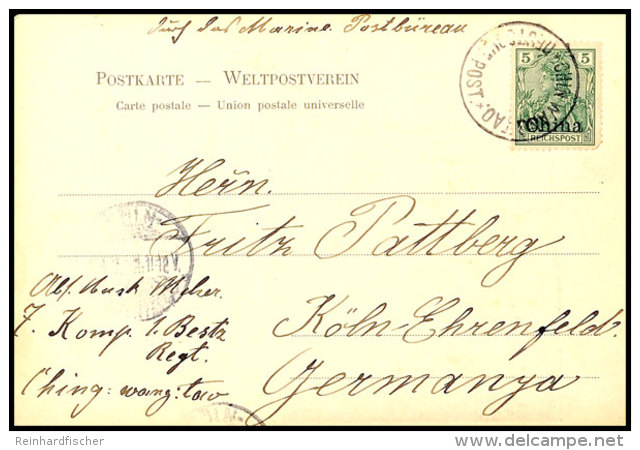 durch das Marine Postbüreau
POSTKARTE — WELTPOSTVEREIN
Carte postale — Union postale universelle
5 5
China
REICHSPOST
Herrn.
Fritz Pattberg
Köln-Ehrenfeld.
Germanya
Abs. Musk.
7. Komp 1. Bestz
Regt.
Ching:wang:tao
Reinhardfischer
delcampe.net